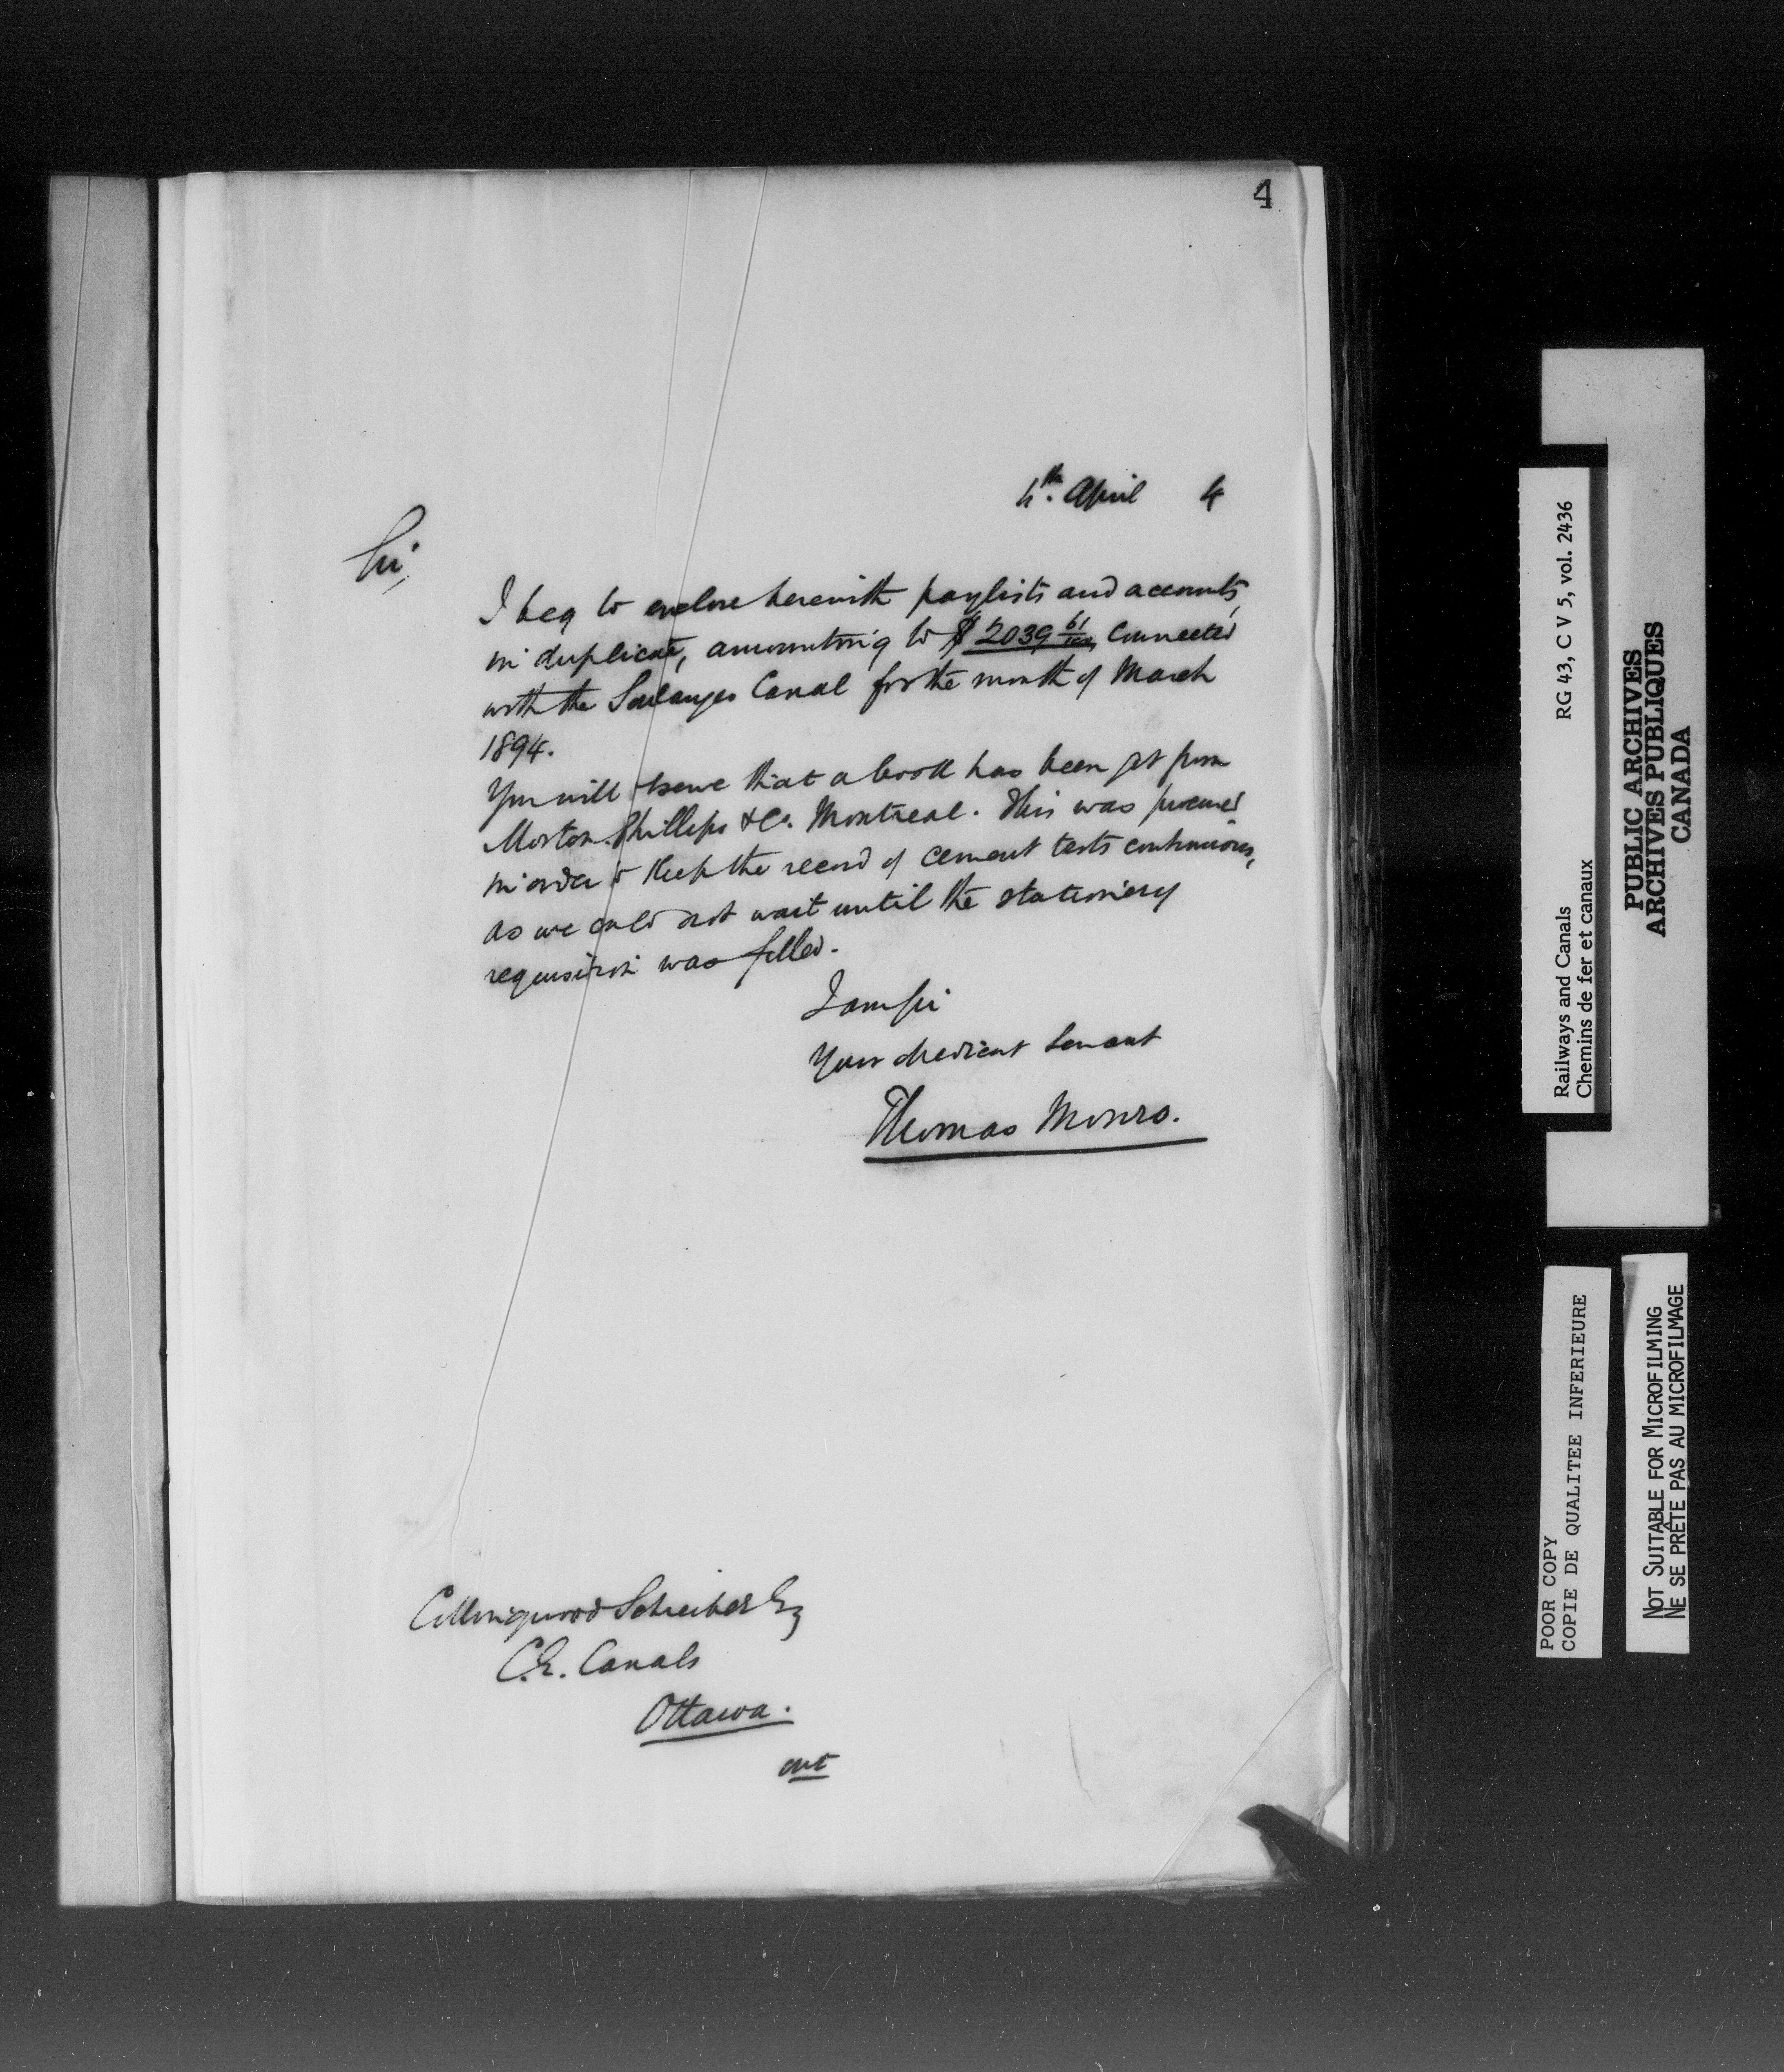 4
4th. April 4
Sir,
I beg to enclose herewith paylists and accounts,
in duplicate, amounting to $2039 61/100, connected
with the Soulanges Canal for the month of March
1894.
You will observe that a book has been got from
Morton Phillips & Co. Montreal. This was procured
in order to keep the record of cement tests continuous,
as we could not wait until the stationery
requisition was filled.
I am Sir
Your obedient servant
Thomas Monro.
Collingwood Schreiber Esq
C.E. Canals
Ottawa.
Railways and Canals RG 43, C V 5, vol. 2436
Chemins de fer et canaux
PUBLIC ARCHIVES
ARCHIVES PUBLIQUES
CANADA
POOR COPY
COPIE DE QUALITEE INFERIEURE
NOT SUITABLE FOR MICROFILMING
NE SE PRÊTE PAS AU MICROFILMAGE